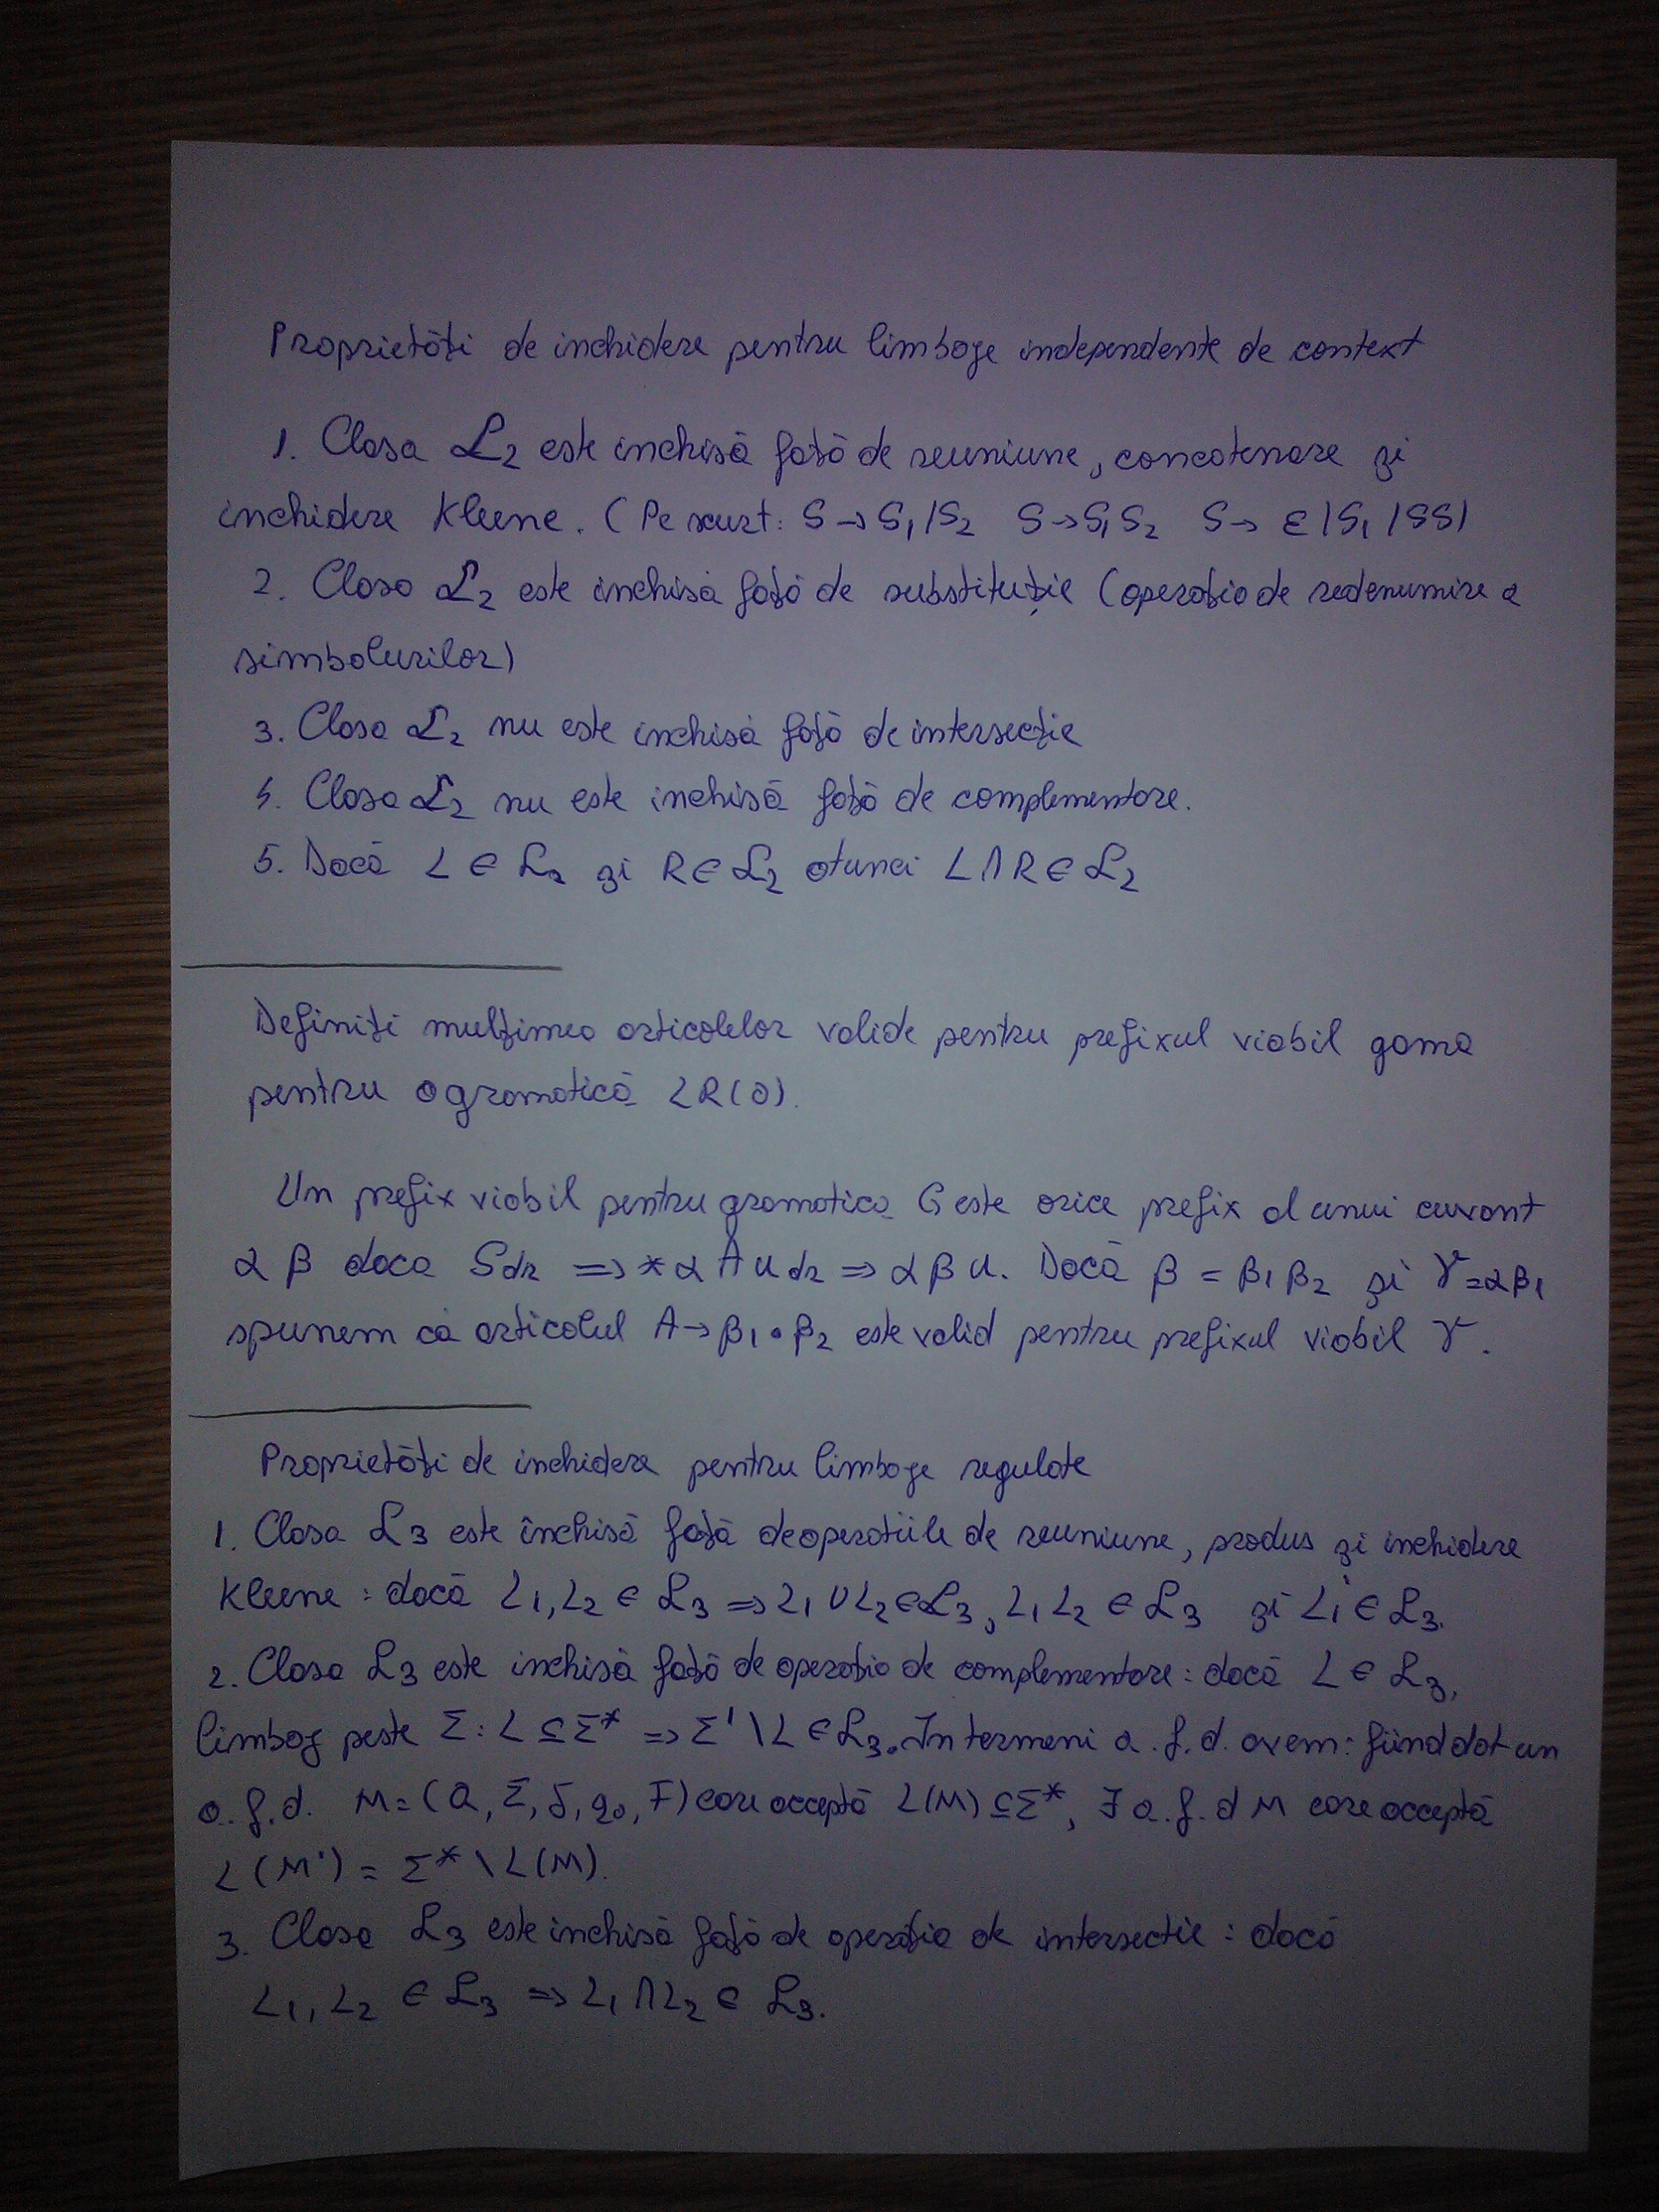 Proprietăți de inchidere pentru limbaje independente de context
1. Clasa ℒ₂ este inchisă față de reuniune, concatenare și
inchidere Kleene. (Pe scurt: S → S₁/S₂ S→S₁S₂ S→ ε/S₁/SS)
2. Clasa ℒ₂ este inchisă față de substituție (operația de redenumire a
simbolurilor)
3. Clasa ℒ₂ nu este inchisă față de intersecție
4. Clasa ℒ₂ nu este inchisă față de complementare.
5. Dacă L ∈ ℒ₂ și R ∈ ℒ₂ atunci L ∩ R ∈ ℒ₂
Definiți mulțimea articolelor valide pentru prefixul viabil gama
pentru o gramatică LR(0).
Un prefix viabil pentru gramatica G este orice prefix al unui cuvant
α β daca S dr => * α A u dr => α β u. Dacă β = β₁ β₂ și γ = α β₁
spunem că articolul A → β₁ • β₂ este valid pentru prefixul viabil γ.
Proprietăți de inchidere pentru limbaje regulate
1. Clasa ℒ₃ este închisă față de operatiile de reuniune, produs și inchidere
Kleene : dacă L₁, L₂ ∈ ℒ₃ => L₁ ∪ L₂ ∈ ℒ₃, L₁ L₂ ∈ ℒ₃ și L₁* ∈ ℒ₃.
2. Clasa ℒ₃ este inchisă față de operația de complementare : dacă L ∈ ℒ₃,
limbaj peste Σ : L ⊆ Σ* => Σ' \ L ∈ ℒ₃. In termeni a.f.d. avem : fiind dat un
a.f.d. M = (Q, Σ, δ, q₀, F) care acceptă L(M) ⊆ Σ*, ∃ a.f.d M care acceptă
L(M') = Σ* \ L(M).
3. Clasa ℒ₃ este inchisă față de operația de intersectie : dacă
L₁, L₂ ∈ ℒ₃ => L₁ ∩ L₂ ∈ ℒ₃.